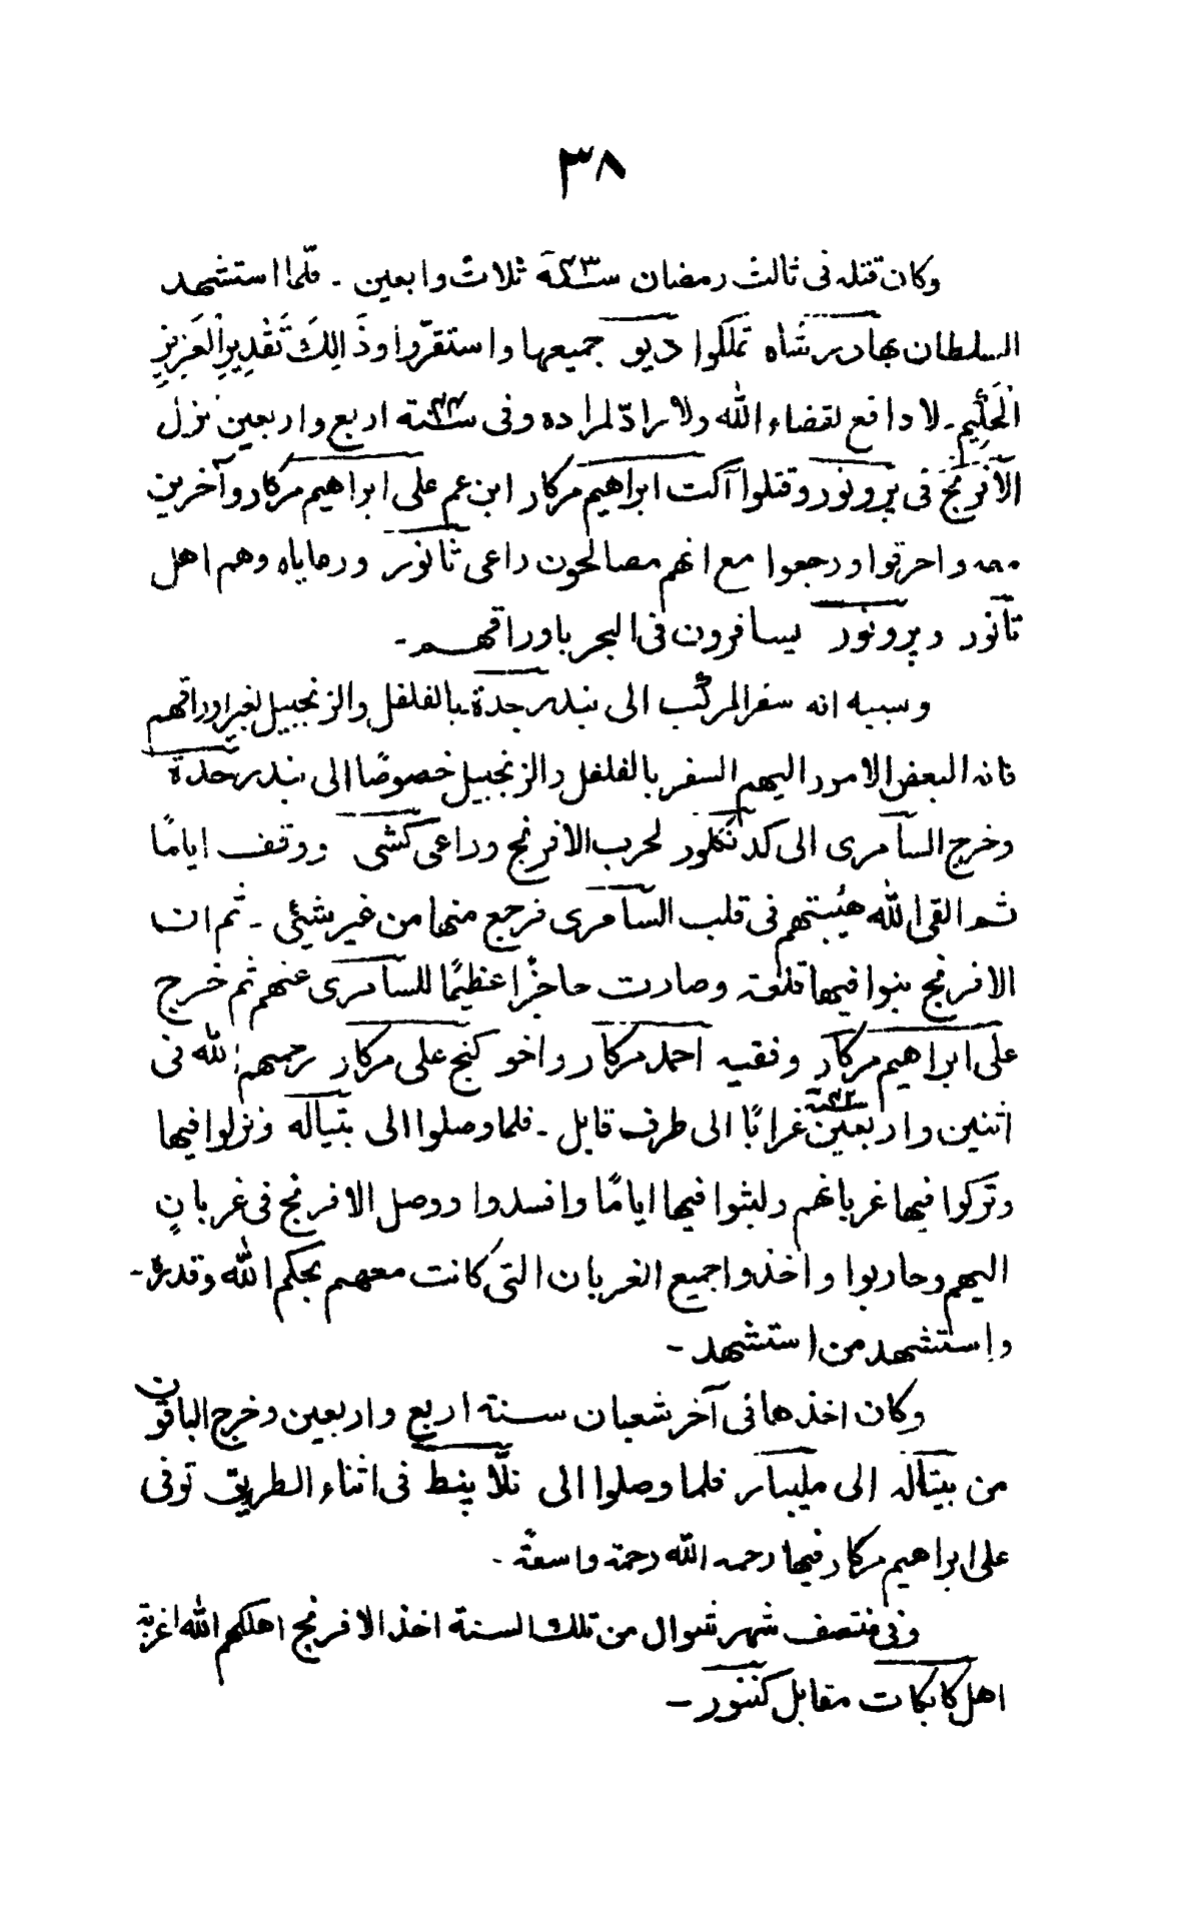 ٣٨
وكان قتله فى ثالث رمضان سنة ٤٣ ثلاث وابعين - فلمّا استشهد
السلطان بهادر شاه تملّكوا ديو جميعها واستقرّوا وذَالِكَ تَقْدِيرُ الْعَزِيزِ
الْعَلِيمِ - لا دافع لقضاء الله ولا رادّ لمراده وفى سنة ٤٤ اربع واربعين نزل
الآفرنج فى پرونور وقتلوا آكت ابراهيم مركار ابن عم على ابراهيم مركار وآخرين
معه واحرقوا ورجعوا مع انهم مصالحون داعى ثانور ورعاياه وهم اهل
تآنور وپرونور يسافرون فى البحر باوراقهم -
وسببه انه سفر المركب الى بندر جدة بالفلفل والزنجبيل لغير اوراقهم
فانه البعض الامور اليهم السفر بالفلفل والزنجبيل خصوصًا الى بندر جدة
وخرج السآمرى الى كدنكلور لحرب الافرنج وداعى كشى ووقف ايامًا
ثم القى الله هيبتهم فى قلب السآمرى فرجع منها من غير شيئ - ثم ان
الافرنج بنوا فيها قلعة وصارت حاجزًا عظيمًا للسامرى عنهم ثم خرج
على ابراهيم مركار وفقيه احمد مركار واخو كنج على مركار رحمهم الله فى
اثنين واربعين سنة ٤٢ غرابًا الى طرف قايل - فلما وصلوا الى بتياله ونزلوا فيها
وتركوا فيها غربانهم ولبثوا فيها ايامًا وافسدوا ووصل الافرنج فى غربانٍ
اليهم وحاربوا واخذوا جميع الغربان التى كانت معهم بحكم الله وقدره -
واستشهد من استشهد -
وكان اخذها فى آخر شعبان سنة اربع واربعين وخرج الباقون
من بيتاله الى مليبار فلما وصلوا الى نلّا پنط فى اثناء الطريق توفى
على ابراهيم مركار فيها رحمه الله رحمة واسعة -
وفى منتصف شهر شوال من تلك السنة اخذ الافرنج اهلكهم الله اغربة
اهل كابكات مقابل كننور -